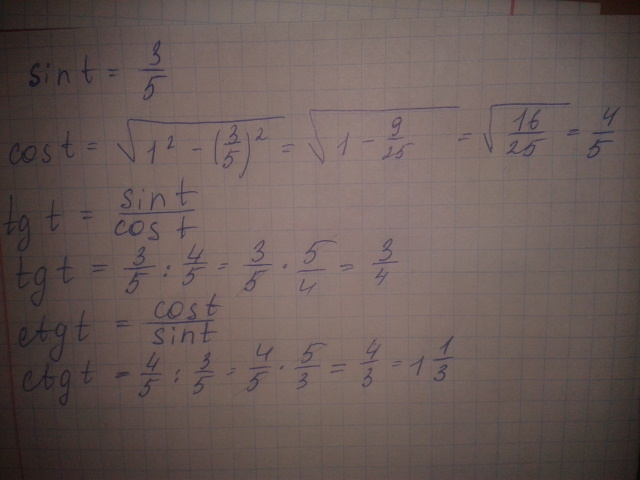 sin t = 3/5
cos t = √(1² - (3/5)²) = √(1 - 9/25) = √(16/25) = 4/5
tg t = sin t / cos t
tg t = 3/5 : 4/5 = 3/5 · 5/4 = 3/4
ctg t = cos t / sin t
ctg t = 4/5 : 3/5 = 4/5 · 5/3 = 4/3 = 1 1/3